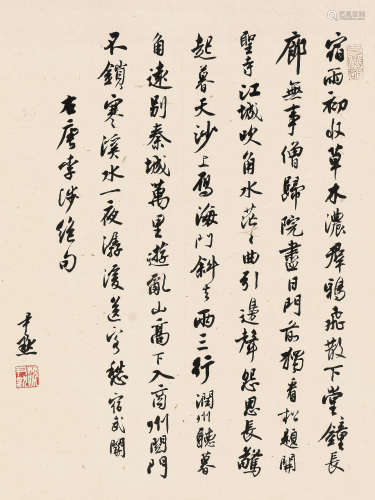 宿雨初收草木濃群鴉飛散下堂鐘長
廊無事僧歸院盡日門前獨看松題開
聖寺江城吹角水茫々曲引邊聲怨思長驚
起暮天沙上雁海門斜去兩三行潤州聽暮
角遠別秦城萬里遊亂山高下入商州關門
不鎖寒溪水一夜潺湲送客愁宿武關
右唐李涉絕句
尹默